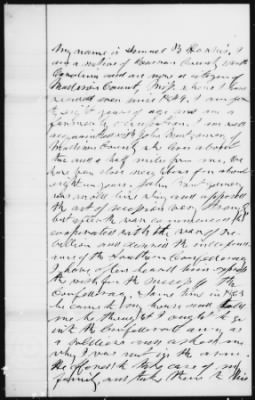 My name is Samuel B
I am a native of County North
Carolina and am now a citizen of
Madison County, Miss, where I have
resided ever since 1849. I am forty
eight years of age and am a
farmer by occupation. I am well
acquainted with John Montgomery
Madison County he lives about
two and a half miles from me, We
have been close neighbors for about
eight years. John Montgomery
was an old line whig and opposed
the act of secession very strongly
but after the war commenced he
cooperated with the war of the
bellion and desired the independ
ence of the Southern Confederacy
I have often heard him express
the wish for the success of the
Confederacy. Some time in 1863
he came to my house and told
me he thought I ought to go
into the Confederate army as
a soldier and asked me
why I was not in the army.
He offered to take care of my
family and take them to his